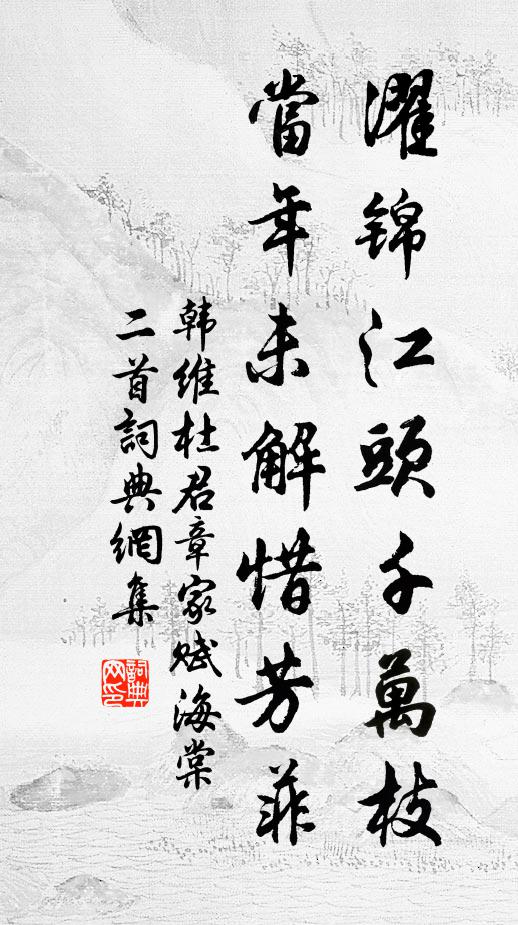 濯锦江頭千萬枝
當年未解惜芳菲
韩維杜君章家赋海棠
二首詞典網集
詞典网印